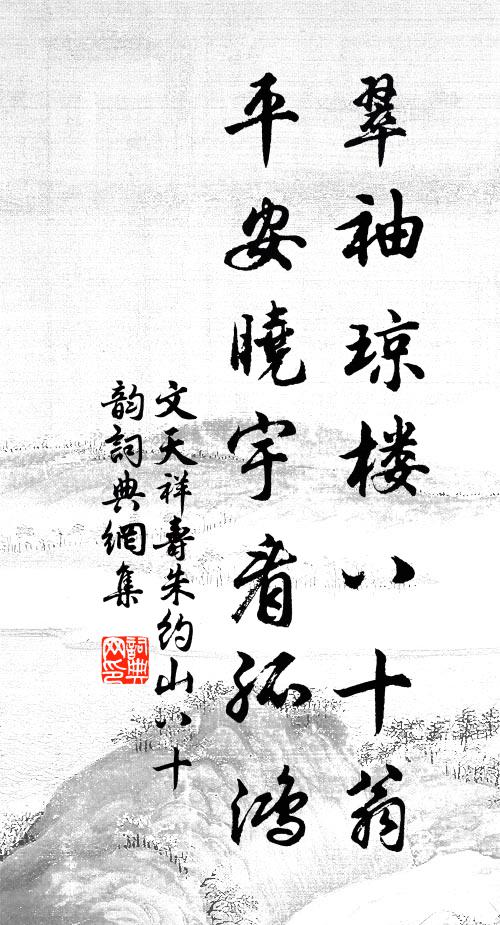 翠袖琼楼八十翁
平安曉宇看孤鴻
文天祥壽朱約山八十
韵詞典網集
詞典
网印